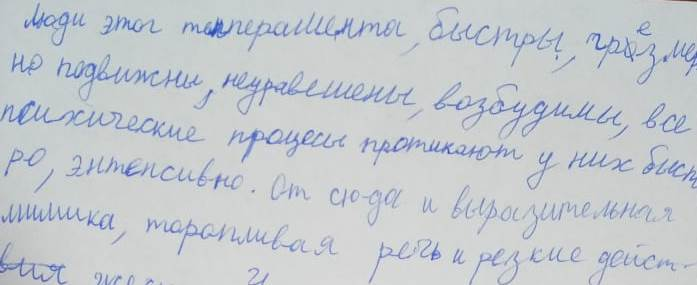 Люди этог темперамента, быстры, чрезмер
но подвижны, неуравешены, возбудимы, все
психические процесы протикают у них быст
ро, энтенсивно. От сю-да и выразительная
мимика, торопливая речь и резкие дейст-
вия